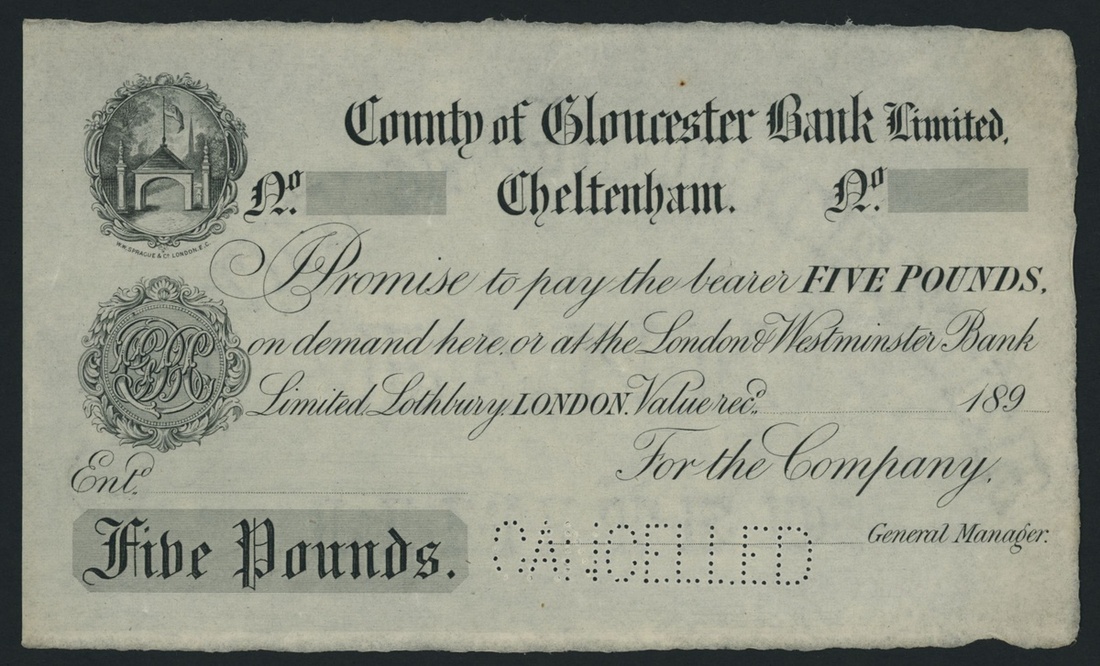 County of Gloucester Bank Limited.
Nº. Cheltenham. Nº.
W.W. SPRAGUE & Cº LONDON, E.C.
I Promise to pay the bearer FIVE POUNDS,
on demand here, or at the London & Westminster Bank
Limited, Lothbury, LONDON. Value recd. 189
For the Company,
Entd.
General Manager.
Five Pounds.
CANCELLED